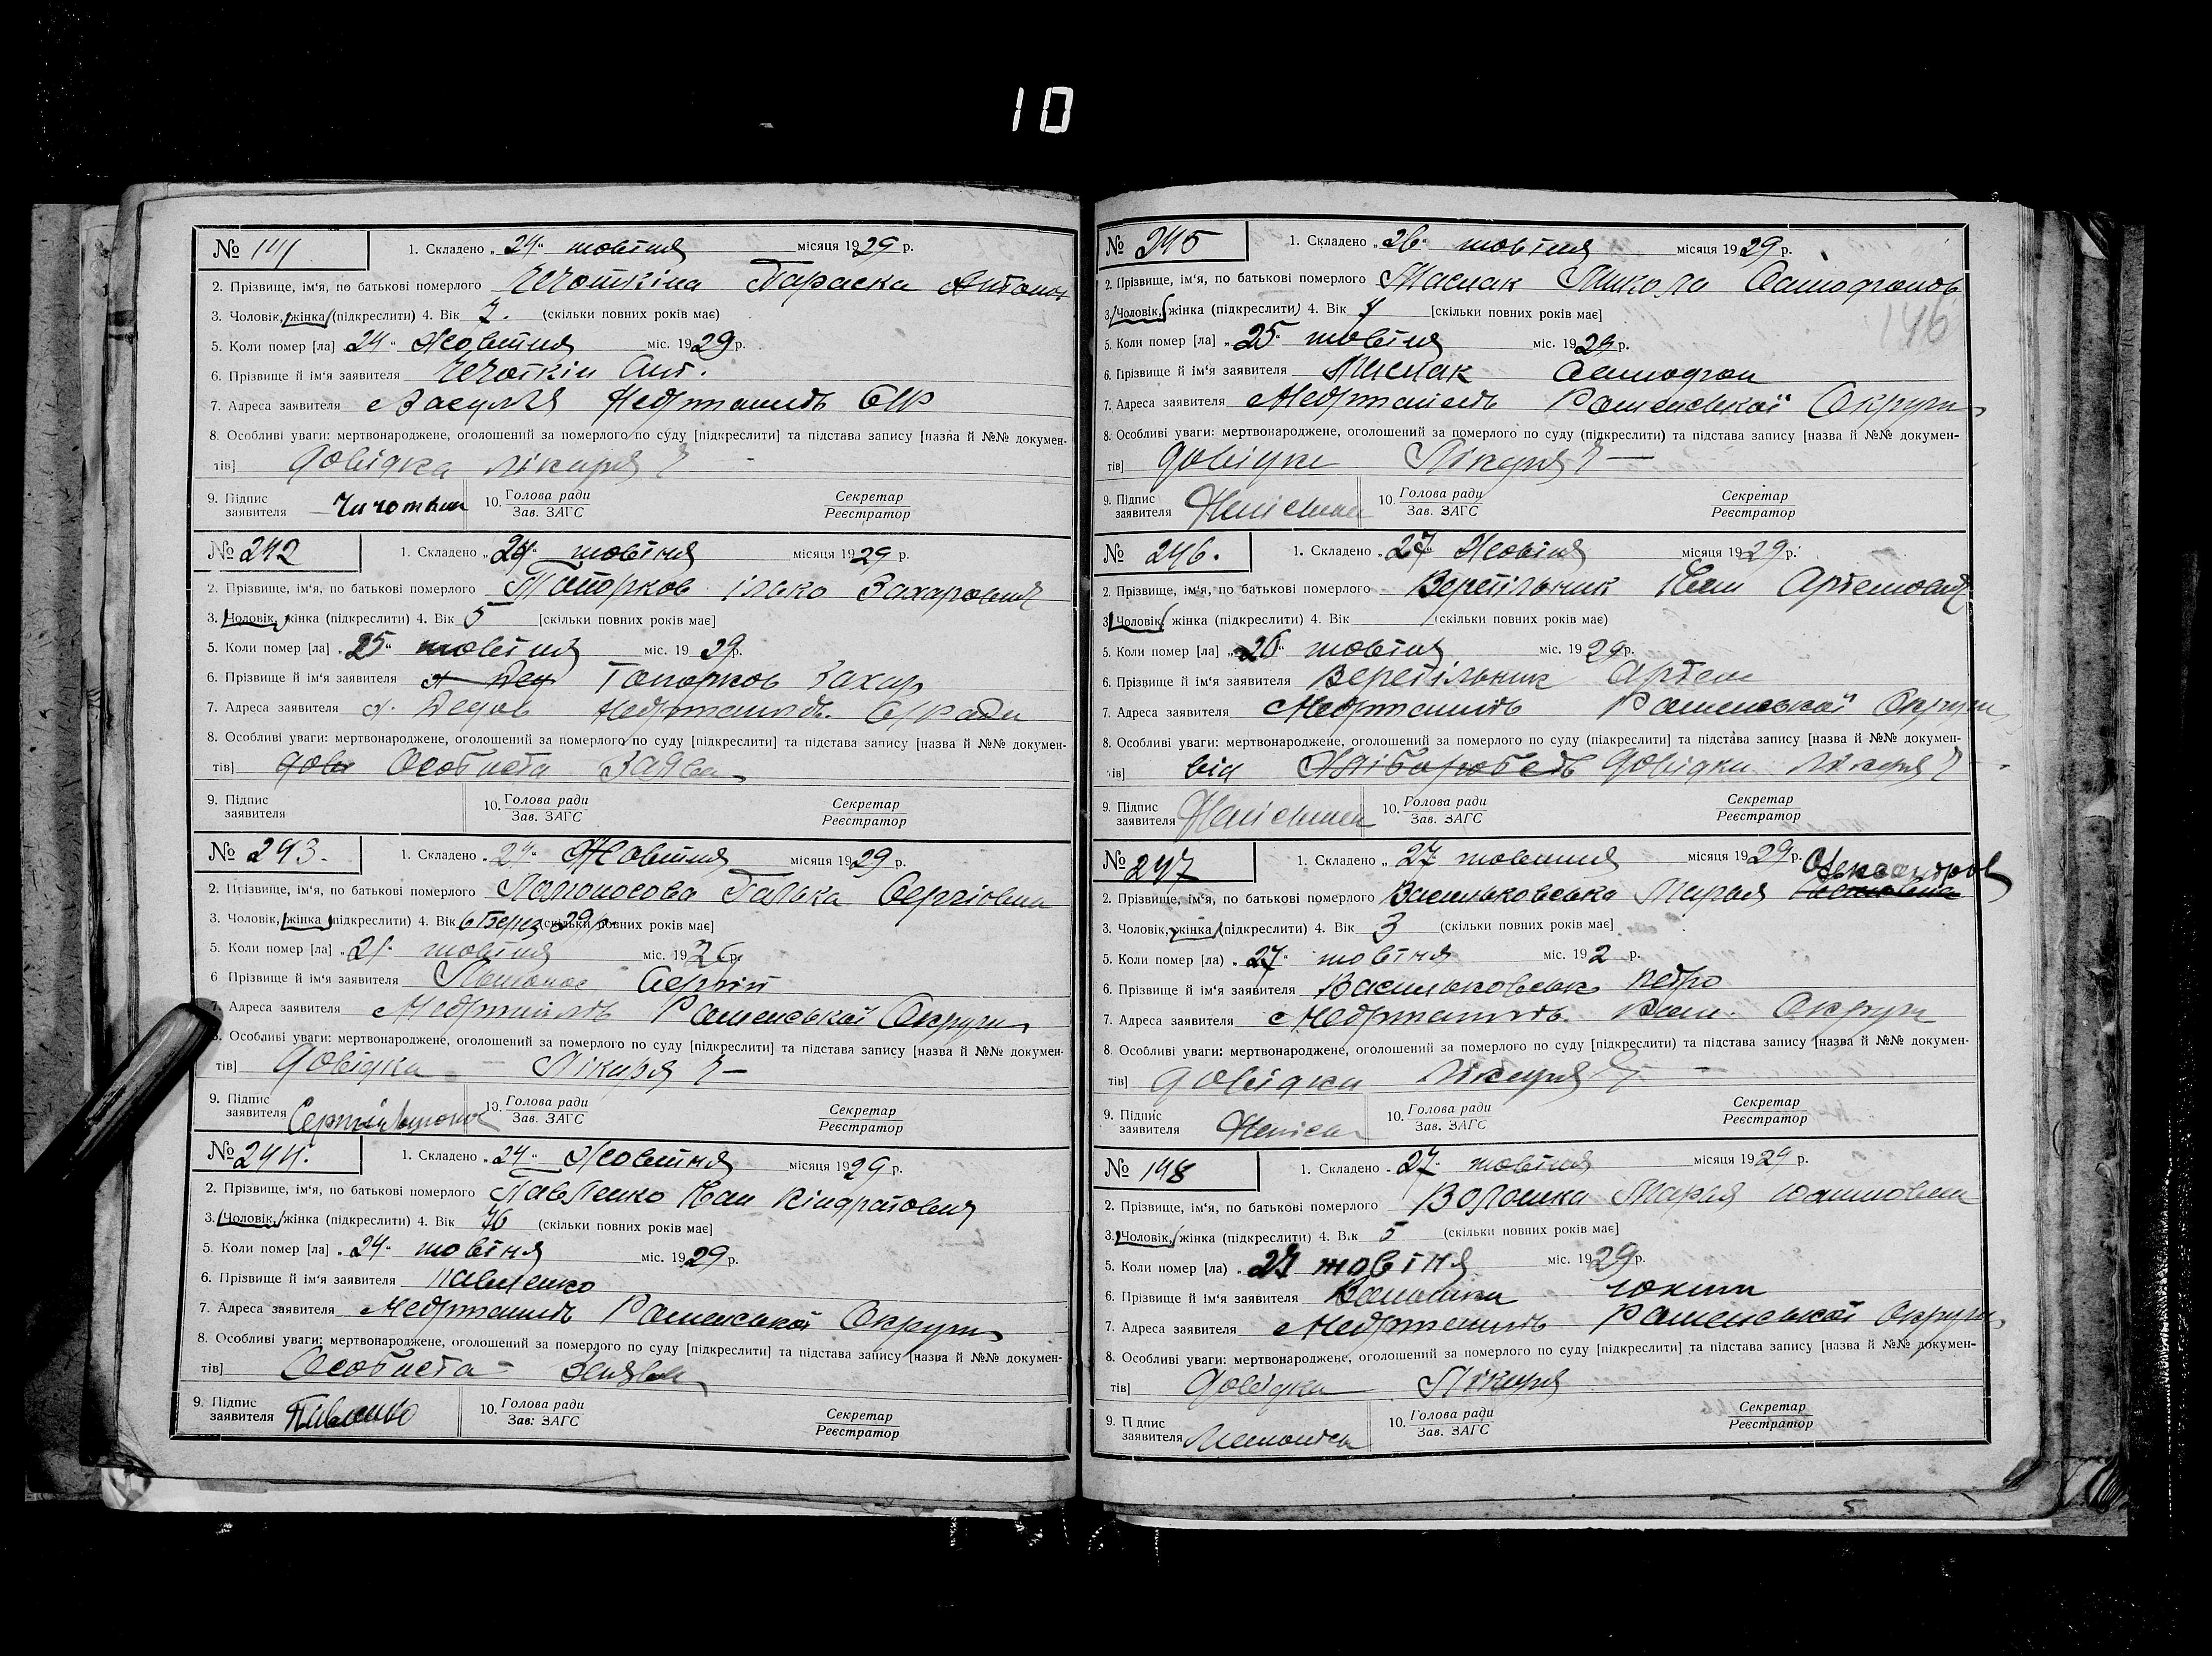 10
№ 141 1. Складено „24“ жовтня місяця 1929 р.
2. Прізвище, ім‘я, по батькові померлого Чечоткіна Параска Антонов
3. Чоловік, жінка (підкреслити) 4. Вік 7. (скільки повних років має)
5. Коли помер [ла] 24“ Жовтня міс. 1929 р.
6. Прізвище й ім‘я заявителя Чечоткін Ант.
7. Адреса заявителя Засулля Недригайлів
8. Особливі уваги: мертвонароджене, оголошений за померлого по суду [підкреслити] та підстава запису [назва й №№ докумен-
тів] довідка лікаря
9. Підпис заявителя Чичоткин 10. Голова ради Зав. ЗАГС Секретар Реєстратор
№ 242 1. Складено „24“ жовтня місяця 1929 р.
2. Прізвище, ім‘я, по батькові померлого Топорков Ілько Захарович
3. Чоловік, жінка (підкреслити) 4. Вік 5 [скільки повних років має]
5. Коли помер [ла] „25“ жовтня міс. 1929 р.
6. Прізвище й ім‘я заявителя Топорков Захар
7. Адреса заявителя с. Недригайлів. С/ради
8. Особливі уваги: мертвонароджене, оголошений за померлого по суду [підкреслити] та підстава запису [назва й №№ докумен-
тів] дові Особиста Заява
9. Підпис заявителя 10. Голова ради Зав. ЗАГС Секретар Реєстратор
№ 243. 1. Складено „24“ Жовтня місяця 1929 р.
2. Прізвище, ім‘я, по батькові померлого Ломоносова Галька Сергіовна
3. Чоловік, жінка (підкреслити) 4. Вік 29 р. [скільки повних років має]
5. Коли помер [ла] „21“ жовтня міс. 1926 р.
6 Прізвище й ім‘я заявителя Сергій
7. Адреса заявителя Недригайлів Роменської Округи
8. Особливі уваги: мертвонароджене, оголошений за померлого по суду [підкреслити] та підстава запису [назва й №№ докумен-
тів] довідка – Лікаря
9. Підпис заявителя Сергій 10. Голова ради Зав. ЗАГС Секретар Реєстратор
№ 244. 1. Складено „24“ Жовтня місяця 1929 р.
2. Прізвище, ім‘я, по батькові померлого Павленко Іван Кіндратович
3. Чоловік, жінка (підкреслити) 4. Вік 76 (скільки повних років має]
5. Коли помер [ла] „24“ жовтня міс. 1929 р.
6. Прізвище й ім‘я заявителя Павленко
7. Адреса заявителя Недригайлів Роменської Округи
8. Особливі уваги: мертвонароджене, оголошений за померлого по суду [підкреслити] та підстава запису [назва й №№ докумен-
тів] Особиста – Заява
9. Підпис заявителя Павленко 10. Голова ради Зав. ЗАГС Секретар Реєстратор
№ 245 1. Складено „26“ жовтня місяця 1929 р.
2. Прізвище, ім‘я, по батькові померлого Маслак Микола
3. Чоловік, жінка (підкреслити) 4. Вік [скільки повних років має]
146
5. Коли помер [ла] „25“ жовтня міс. 1929 р.
6. Прізвище й ім‘я заявителя Маслак
7. Адреса заявителя Недригайлів Роменської Округи
8. Особливі уваги: мертвонароджене, оголошений за померлого по суду (підкреслити) та підстава запису [назва й №№ докумен-
тів] довідка Лікаря
9. Підпис заявителя 10. Голова ради Зав. ЗАГС Секретар Реєстратор
№ 246. 1. Складено „27“ Жовтня місяця 1929 р.
2. Прізвище, ім‘я, по батькові померлого Веретільник Іван Артемович
3. Чоловік, жінка (підкреслити) 4. Вік (скільки повних років має)
5. Коли помер [ла] „26“ жовтня міс. 1929 р.
6. Прізвище й ім‘я заявителя Веретільник Артем
7. Адреса заявителя Недригайлів Роменської Округи
8. Особливі уваги: мертвонароджене, оголошений за померлого по суду (підкреслити] та підстава запису [назва й №№ докумен-
тів] від Довідка Лікаря
9. Підпис заявителя 10. Голова ради Зав. ЗАГС Секретар Реєстратор
№ 247 1. Складено „27“ жовтня місяця 1929 р. Олександров
2. Прізвище, ім‘я, по батькові померлого Васильковська Марья
3. Чоловік, жінка (підкреслити) 4. Вік 3 (скільки повних років має]
5. Коли помер [ла) „27“ жовтня міс. 192 р.
6. Прізвище й ім‘я заявителя Васильковськ Петро
7. Адреса заявителя Недригайлів. Ром. Округи
8. Особливі уваги: мертвонароджене, оголошений за померлого по суду [підкреслити) та підстава запису [назва й №№ докумен-
тів] довідка Лікаря
9. Підпис заявителя 10. Голова ради Зав. ЗАГС Секретар Реєстратор
№ 148 1. Складено „27“ жовтня місяця 1929 р.
2. Прізвище, ім‘я, по батькові померлого Волошка Марья Юхимовна
3. Чоловік, жінка (підкреслити) 4. Вік 5 (скільки повних років має]
5. Коли помер [ла) „27 жовтня міс. 1929 р.
6. Прізвище й ім‘я заявителя Волошка Юхим
7. Адреса заявителя Недригайлів Роменської Округи
8. Особливі уваги: мертвонароджене, оголошений за померлого по суду [підкреслити] та підстава запису [назва й №№ докумен-
тів] Довідка Лікаря
9. Підпис заявителя 10. Голова ради Зав. ЗАГС Секретар Реєстратор
5